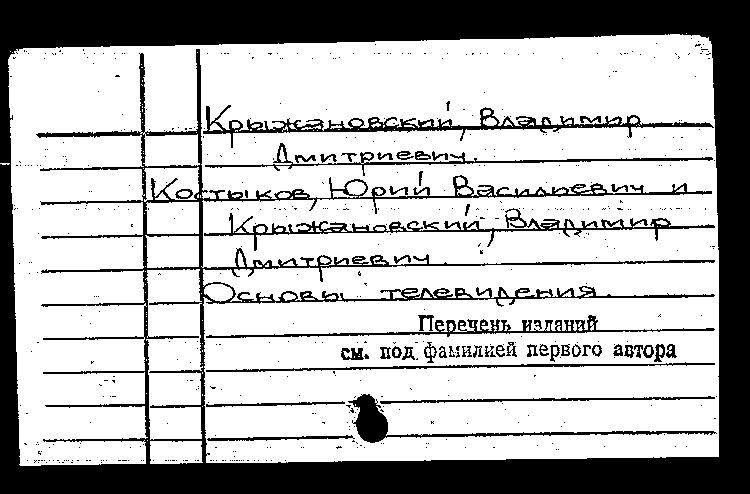 Крыжановский, Владимир
Дмитриевич.
Костыков, Юрий Васильевич и
Крыжановский, Владимир
Дмитриевич.
Основы телевидения.
Перечень изданий
см. под фамилией первого автора